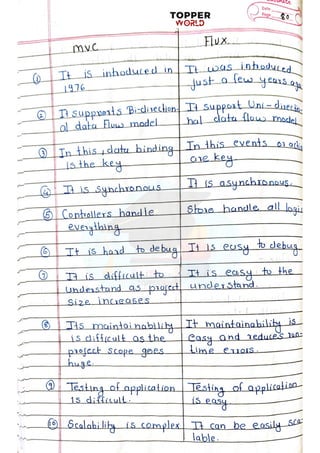 TOPPER
WORLD
Date
Page 80
MVC Flux
① It is introduced in It was introduced
1976 just a few years ago
② It supports Bi-direction It support Uni-directio
al data flow model nal data flow model
③ In this, data binding In this events or actio
is the key are key.
④ It is synchronous It is asynchronous.
⑤ Controllers handle Store handle all logic
everything
⑥ It is hard to debug It is easy to debug
⑦ It is difficult to It is easy to the
understand as project understand.
size increases
⑧ Its maintainability It maintainability is
is difficult as the easy and reduces run-
project scope goes time errors.
huge.
⑨ Testing of application Testing of application
is difficult. is easy
⑩ Scalability is complex It can be easily sca
lable.